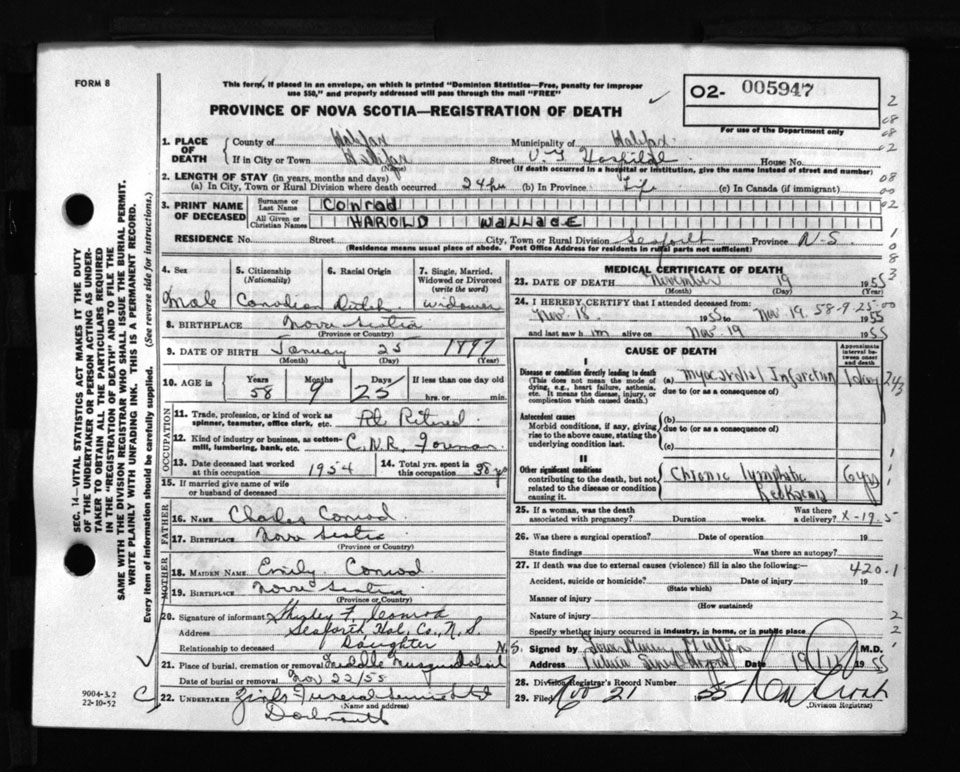 FORM 8
This form, if placed in an envelope, on which is printed "Dominion Statistics—Free, penalty for improper
use $50," and properly addressed will pass through the mail "FREE"
PROVINCE OF NOVA SCOTIA—REGISTRATION OF DEATH
O2- 005947
For use of the Department only
1. PLACE OF DEATH
County of Halifax Municipality of Halifax
If in City or Town Halifax (Name) Street V.G. Hospital House No.
(If death occurred in a hospital or institution, give the name instead of street and number)
2. LENGTH OF STAY (in years, months and days)
(a) In City, Town or Rural Division where death occurred 24 hrs (b) In Province Life (c) In Canada (if immigrant)
3. PRINT NAME OF DECEASED
Surname or Last Name Conrad
All Given or Christian Names HAROLD WALLACE
RESIDENCE No. Street City, Town or Rural Division Seaforth Province N.S.
(Residence means usual place of abode. Post Office Address for residents in rural parts not sufficient)
4. Sex Male
5. Citizenship (Nationality) Canadian
6. Racial Origin Dutch
7. Single, Married, Widowed or Divorced (write the word) widower
8. BIRTHPLACE Nova Scotia
(Province or Country)
9. DATE OF BIRTH January 25 1897
(Month) (Day) (Year)
10. AGE in Years 58 Months 9 Days 25 If less than one day old
hrs. or min.
OCCUPATION
11. Trade, profession, or kind of work as spinner, teamster, office clerk, etc. Retired
12. Kind of industry or business, as cotton-mill, lumbering, bank, etc. C.N.R. Foreman
13. Date deceased last worked at this occupation 1954
14. Total yrs. spent in this occupation 38 yrs
15. If married give name of wife or husband of deceased
FATHER
16. NAME Charles Conrad
17. BIRTHPLACE Nova Scotia
(Province or Country)
MOTHER
18. MAIDEN NAME Emily Conrod
19. BIRTHPLACE Nova Scotia
(Province or Country)
20. Signature of informant Shirley F. Conrod
Address Seaforth Hal. Co., N.S.
Relationship to deceased Daughter
21. Place of burial, cremation or removal Middle Musquodoboit N.S.
Date of burial or removal Nov 22/55
22. UNDERTAKER Funeral Service Ltd
(Name and address)
Dartmouth
MEDICAL CERTIFICATE OF DEATH
23. DATE OF DEATH November 19 1955
(Month) (Day) (Year)
24. I HEREBY CERTIFY that I attended deceased from:
Nov. 18 1955 to Nov. 19 1955
58-9-25-00
and last saw him alive on Nov. 19 1955
CAUSE OF DEATH
Approximate interval between onset and death
I
Disease or condition directly leading to death
(This does not mean the mode of dying, e.g., heart failure, asthenia, etc. It means the disease, injury, or complication which caused death.)
(a) Myocardial Infarction 1 day
due to (or as a consequence of)
Antecedent causes
Morbid conditions, if any, giving rise to the above cause, stating the underlying condition last.
(b)
due to (or as a consequence of)
(c)
II
Other significant conditions
contributing to the death, but not related to the disease or condition causing it.
Chronic lymphatic Leukaemia 6 yrs
25. If a woman, was the death associated with pregnancy? Duration weeks. Was there a delivery? X-19.5
26. Was there a surgical operation? Date of operation 19
State findings Was there an autopsy?
27. If death was due to external causes (violence) fill in also the following:— 420.1
Accident, suicide or homicide? Date of injury 19
(State which)
Manner of injury
(How sustained)
Nature of injury
Specify whether injury occurred in industry, in home, or in public place
Signed by M.D.
Address Victoria General Hospital Date 19 1955
28. Division Registrar's Record Number
29. Filed Nov 21 1955
(Division Registrar)
SEC. 14—VITAL STATISTICS ACT MAKES IT THE DUTY
OF THE UNDERTAKER OR PERSON ACTING AS UNDER-
TAKER TO OBTAIN ALL THE PARTICULARS REQUIRED
IN THE "REGISTRATION OF DEATH" AND TO FILE THE
SAME WITH THE DIVISION REGISTRAR WHO SHALL ISSUE THE BURIAL PERMIT.
WRITE PLAINLY WITH UNFADING INK. THIS IS A PERMANENT RECORD.
Every item of information should be carefully supplied. (See reverse side for instructions.)
9004-3.2
22-10-52